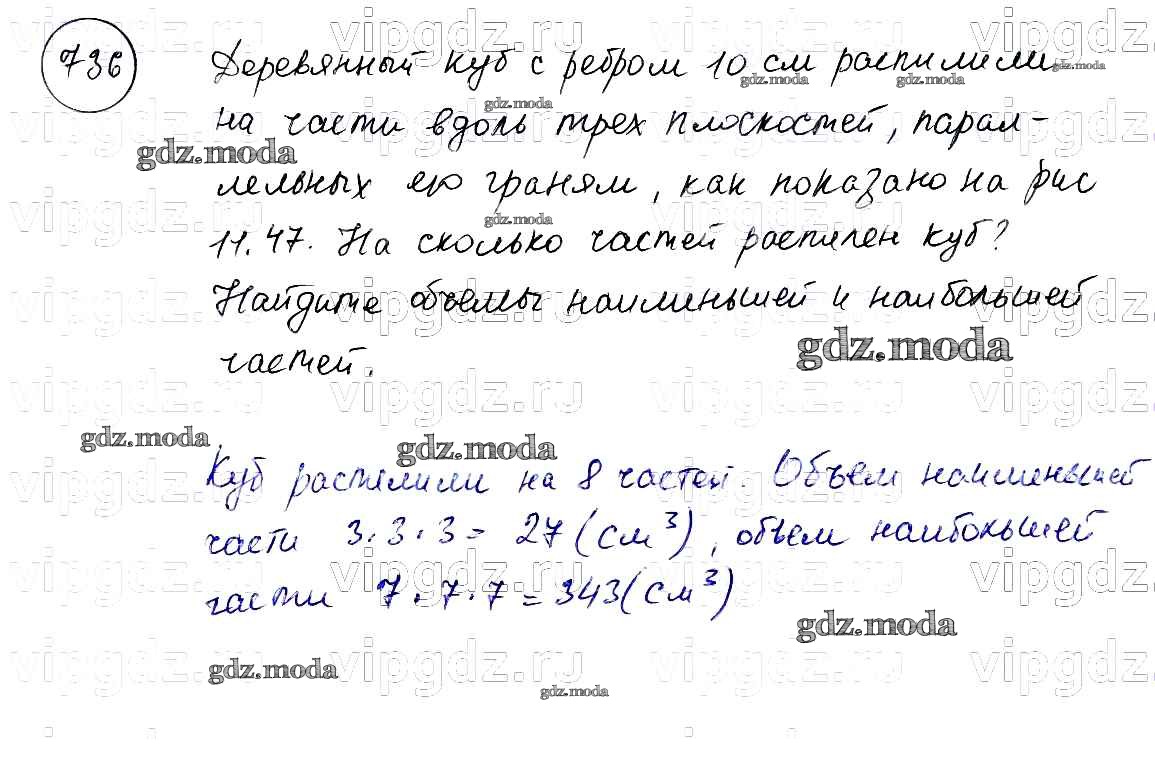 736
Деревянный куб с ребром 10 см распилили
на части вдоль трех плоскостей, парал-
лельных его граням, как показано на рис
11.47. На сколько частей распилен куб?
Найдите объемы наименьшей и наибольшей
частей.
Куб распилили на 8 частей. Объем наименьшей
части 3.3.3= 27 (см³), объем наибольшей
части 7.7.7=343(см³)
vipgdz.ru
gdz.moda